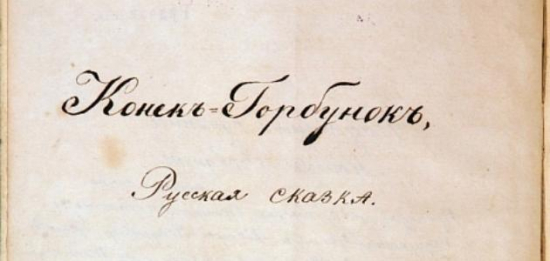 Конекъ=Горбунокъ,
Русская сказка.